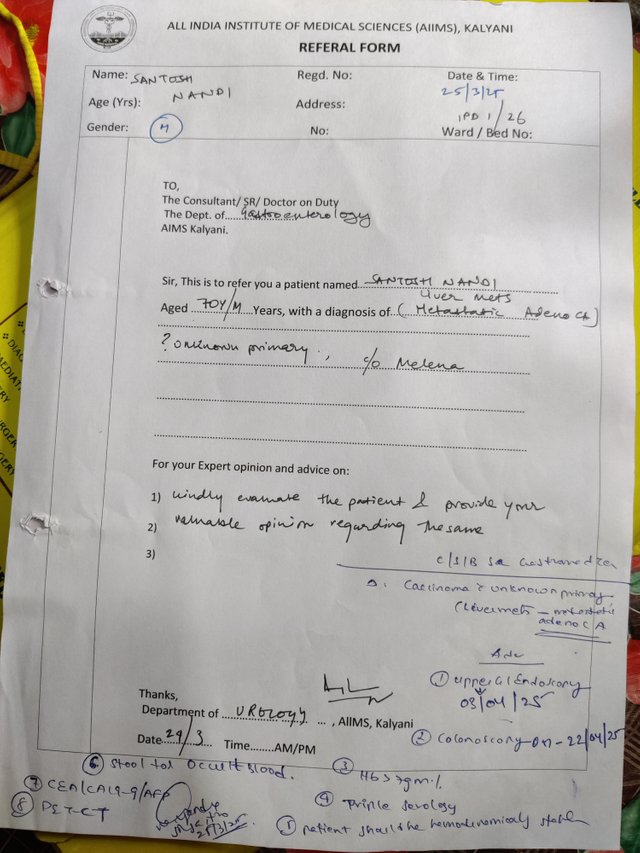 ALL INDIA INSTITUTE OF MEDICAL SCIENCES (AIIMS), KALYANI
REFERAL FORM
Name: SANTOSH NANDI
Regd. No:
Date & Time: 25/3/25
Age (Yrs):
Address:
IPD 1/26
Gender: M
No:
Ward / Bed No:
TO,
The Consultant/ SR/ Doctor on Duty
The Dept. of Gastroenterology
AIMS Kalyani.
Sir, This is to refer you a patient named SANTOSH NANDI
Liver mets
Aged 70Y/M Years, with a diagnosis of (Metastatic Adeno CA)
? Unknown primary, c/o Melena
For your Expert opinion and advice on:
1) Kindly evaluate the patient & provide your
2) valuable opinion regarding the same
3)
C/S/B SR
Carcinoma ? unknown primary
(Liver mets – metastatic
adeno CA
Adv
① Upper GI Endoscopy
03/04/25
Thanks,
Department of UROLOGY, AIIMS, Kalyani
② Colonoscopy on - 22/04/25
Date 29/3 Time.......AM/PM
⑥ Stool for Occult Blood.
③ Hb > 7gm%
⑦ CEA/CA19-9/AFP
④ Triple serology
⑧ PET-CT
25/3/25
⑤ patient should be hemodynamically stable